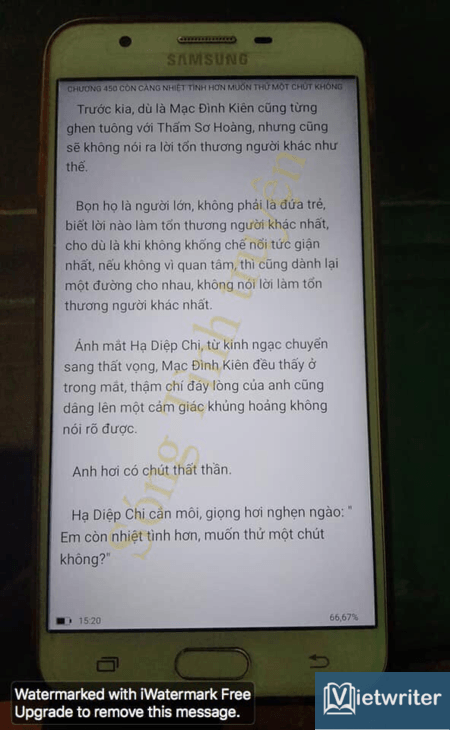 SAMSUNG
CHƯƠNG 450 CÒN CÀNG NHIỆT TÌNH HƠN MUỐN THỬ MỘT CHÚT KHÔNG
Trước kia, dù là Mạc Đình Kiên cũng từng
ghen tuông với Thẩm Sơ Hoàng, nhưng cũng
sẽ không nói ra lời tổn thương người khác như
thế.
Bọn họ là người lớn, không phải là đứa trẻ,
biết lời nào làm tổn thương người khác nhất,
cho dù là khi không khống chế nổi tức giận
nhất, nếu không vì quan tâm, thì cũng dành lại
một đường cho nhau, không nói lời làm tổn
thương người khác nhất.
Ánh mắt Hạ Diệp Chi, từ kinh ngạc chuyển
sang thất vọng, Mạc Đình Kiên đều thấy ở
trong mắt, thậm chí đáy lòng của anh cũng
dâng lên một cảm giác khủng hoảng không
nói rõ được.
Anh hơi có chút thất thần.
Hạ Diệp Chi cắn môi, giọng hơi nghẹn ngào: "
Em còn nhiệt tình hơn, muốn thử một chút
không?"
Sóng Tình truyện
15:20
66,67%
Watermarked with iWatermark Free
Upgrade to remove this message.
Vietwriter